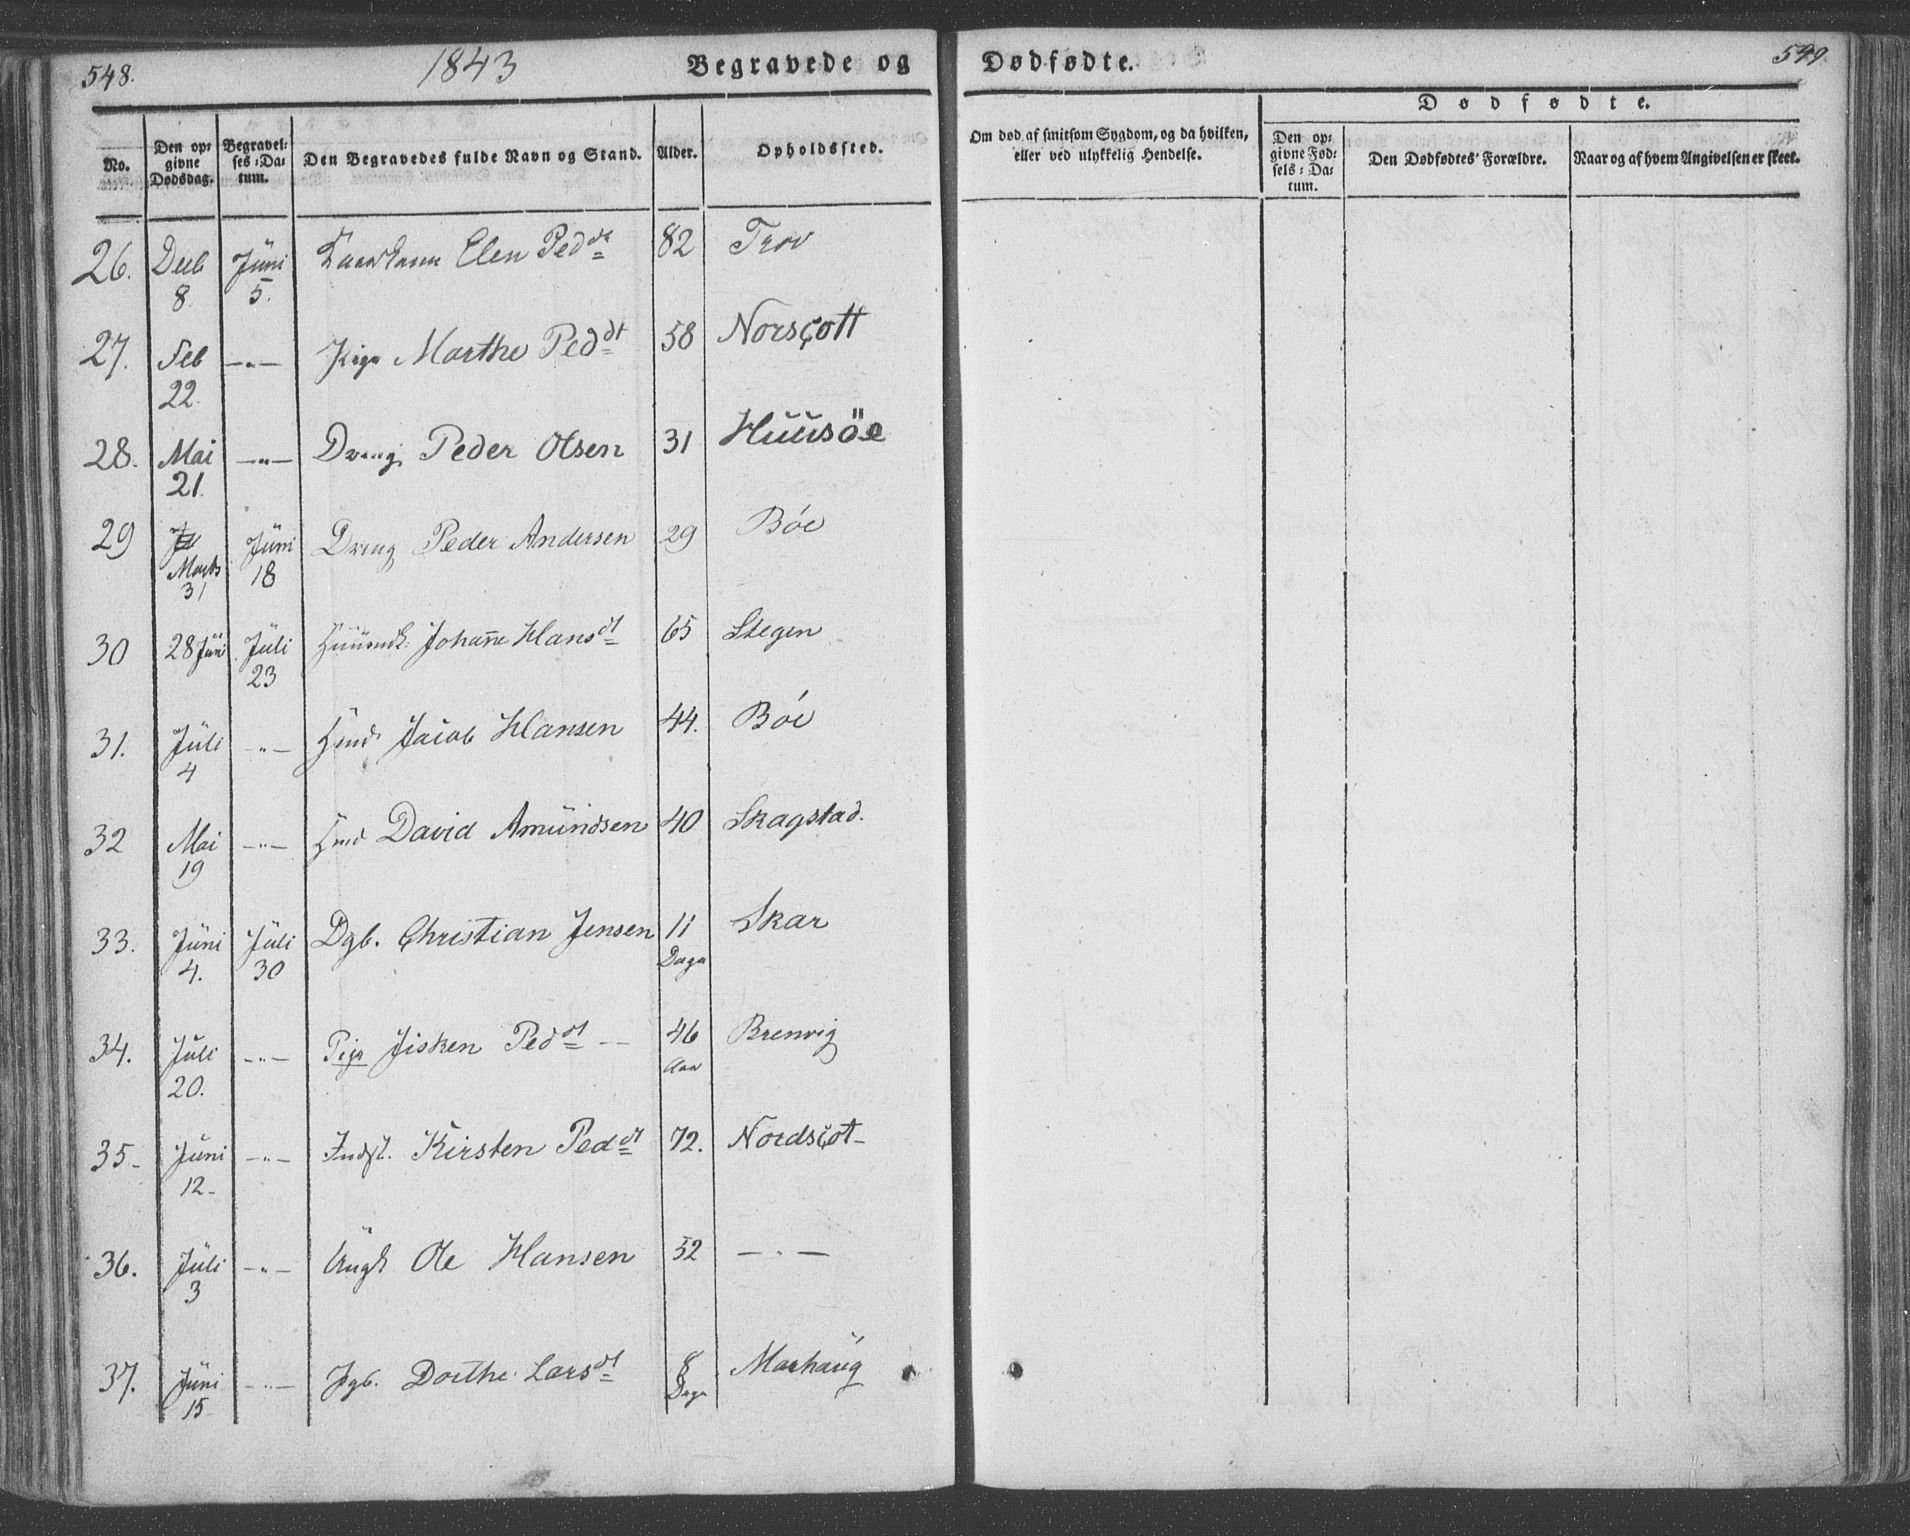 548.
1843
Begravede og
Dødfødte.
549.
No.
Den op=
givne
Dødsdag.
Begravel=
ses=Da=
tum.
Den Begravedes fulde Navn og Stand.
Alder.
Opholdssted.
Om død af smitsom Sygdom, og da hvilken,
eller ved ulykkelig Hendelse.
Dødfødte.
Den op=
givne Fød=
sels=Da=
tum.
Den Dødfødtes Forældre.
Naar og af hvem Angivelsen er skeet.
26. Decb Juni Elen Peddt 82 Trov
8. 5.
27. Feb —"— Marthe Peddt 58 Norsçott
22.
28. Mai —"— Dreng Peder Olsen 31 Huusöe
21.
29 Juni Dreng Peder Andersen 29 Bóe
Marts 18
31
30 28 Juni Juli Huusmdk. Johanne Hansdt 65 Stegen
23
31. Juli —"— Hmd Jacob Hansen 44. Bóe
4
32 Mai —"— Hmd David Amundsen 40 Skagstad.
19
33. Juni Juli Dgb. Christian Jensen 11 Skar
4. 30 Dage
34. Juli —"— Pige Jisken Peddt — 46 Brenvig
20. Aar
35- Juni —"— Indst. Kirsten Peddt 72. Nordsçot-
12-
36. Juli —"— Ungk Ole Hansen 52 —"—
3
37. Juni —"— Pgb. Dorthe Larsdt 8 Marhaug
15 Dage